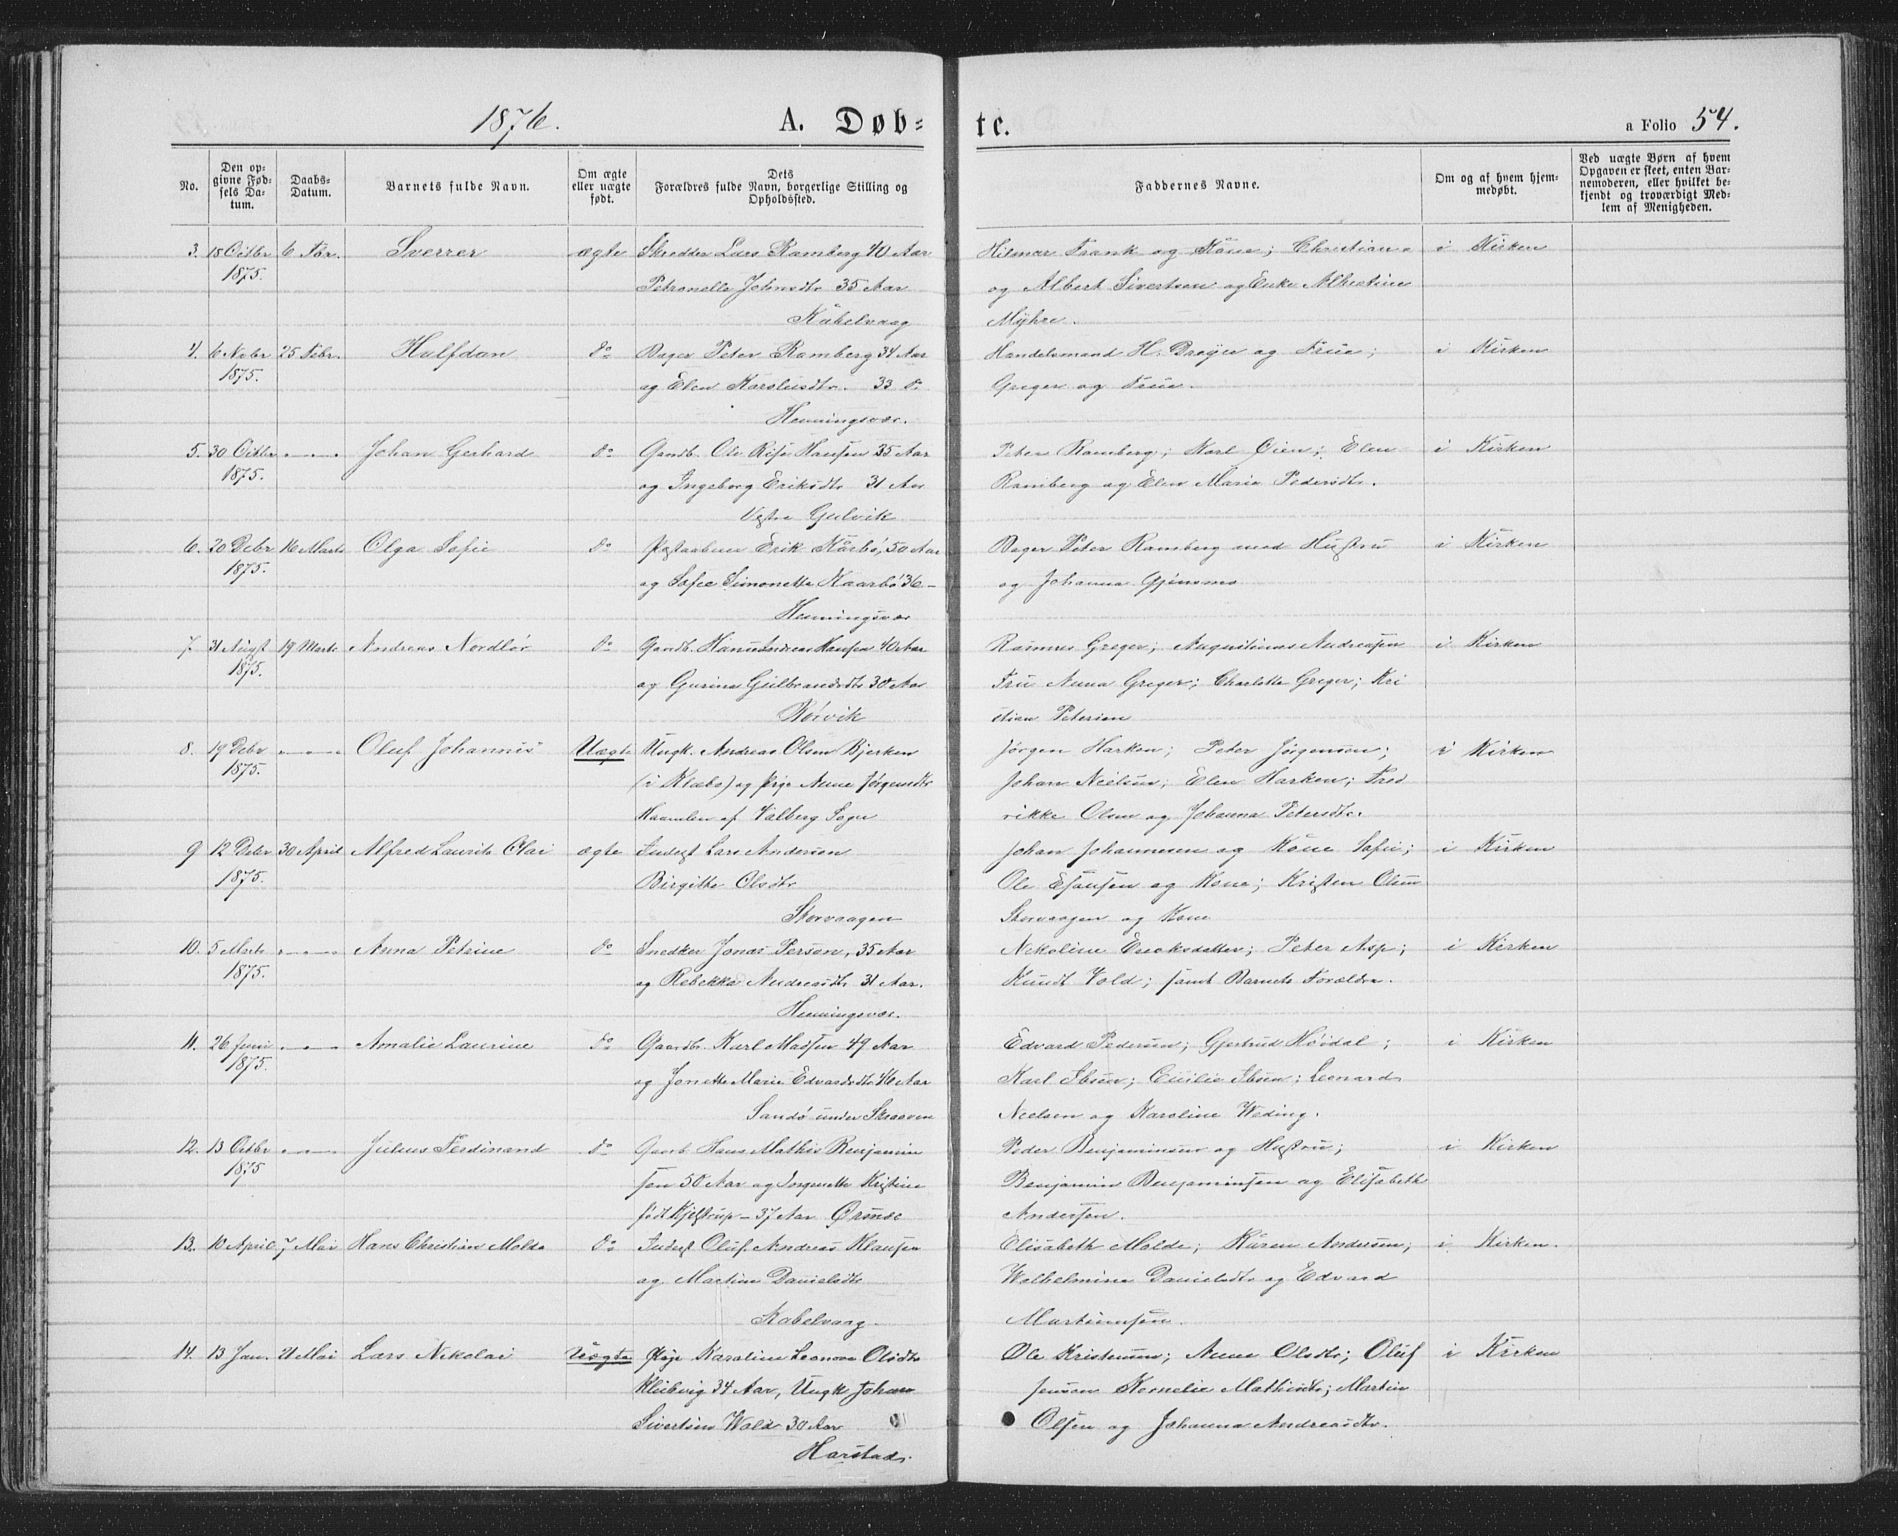 1876. A. Døb= te. a Folio 54.
No. Den opgivne Fødsels Datum. Daabs-Datum. Barnets fulde Navn. Om ægte eller uægte født. Dets Forældres fulde Navn, borgerlige Stilling og Opholdssted. Faddernes Navne. Om og af hvem hjemmedøbt. Ved uægte Børn af hvem Opgaven er skeet, enten Barnemoderen, eller hvilket bekjendt og troværdigt Medlem af Menigheden.
3. 18 Octbr 6 Febr. Sverrer ægte Skredder Lars Ramberg 40 Aar Hilmar Frank og Kone; Christian i Kirken
1875. Petronelle Johnsdtr 35 Aar og Albert Sivertsen og Enke Albertine
Kabelvaag Myhre.
4. 6 Novbr 25 Febr. Halfdan do Bager Peter Ramberg 34 Aar Handelsmand H. Dreyer og Frue; i Kirken
1875. og Elen Karelusdtr. 33 do Greger og Frue.
Henningsvær.
5. 30 Octbr Johan Gerhard do Gaardb. Ole Hansen 35 Aar Peter Ramberg; Karl Öien; Elen i Kirken
1875. og Ingeborg Eriksdtr 31 Aar Ramberg og Elen Maria Pedersdtr.
Vestre Gulvik
6. 20 Debr 16 Marts Olga Sofie do Erik Kaarbö, 50 Aar Bager Peter Ramberg med Hustru i Kirken
1875. og Sofie Simonette Kaarbö 36 - og Johanna
Henningsvær
7. 31 Augst 19 Marts Andreas Nordlör do Gaardb. Hans Andreas Hansen 40 Aar Rasmus Greger; Augustinus Andreasen i Kirken
1875. og Gurina Gulbrandsdtr 30 Aar Fru Anna Greger; Charlotte Greger; Kri
Rörvik stian Petersen
8. 19 Debr Oluf Johannes Uægte Ungk. Andreas Olsen Bjerken Jørgen Harken; Peter Jørgensen; i Kirken
1875. (i Klæbo) og Pige Anne Jørgensdtr Johan Neelsen; Elen Harken; Fred
af Valberg Sogn rikke Olsen og Johanna Petersdtr.
9 12 Debr 30 April Alfred Laurits Olai ægte Inderst Lars Andersen Johan Johannesen og Kone Sofie; i Kirken
1875. Birgitte Olsdtr Ole Esausen og Kone; Kristen Olsen
Storvaagen Storvaagen og Kone
10. 5 Marts Anna Petrine do Snedker Jonas Person, 35 Aar Nekoline Ericksdatter; Peter Asp; i Kirken
1875. og Rebekka Andreasdtr 31 Aar. Knudt Vold; samt Barnets Forældre.
Henningsvær.
11. 26 Juni Amalie Laurine do Gaardb. Karl Madsen 49 Aar Edvard Pedersen; Gjertrud Höidal; i Kirken
1875. og Jonette Marie Edvardsdtr 46 Aar Karl Ibsen; Cecilie Ibsen; Leonard
Sandö under Skraaven Neelsen og Karoline Weding.
12. 13 Octbr Julius Ferdinand do Gaardb Hans Mathis Benjamin Peder Benjaminsen og Hustru; i Kirken
1875 sen 50 Aar og Jorgenette Kristine Benjamin Benjaminsen og Elisabeth
født Kjelstrup - 37 Aar Ørsnæs Andersen.
13. 10 April 7 Mai Hans Christian Molde do Inderst Oluf Andreas Klausen Elisabeth Molde; Karen Andersen; i Kirken.
og Martine Danielsdtr Welhelmina Danielsdtr og Edvard
Kabelvaag. Martinusen.
14. 13 Jan. 21 Mai Lars Nikolai Uægte Pige Karoline Leonora Olsdtr Ole Kristensen; Anne Olsdtr; Oluf i Kirken
Kleibvig 34 Aar, Ungk Johan Jensen Kornelie Mathisdtr; Martin
Sivertsen Wold 30 Aar Olsen og Johanna Andreasdtr.
Harstad.